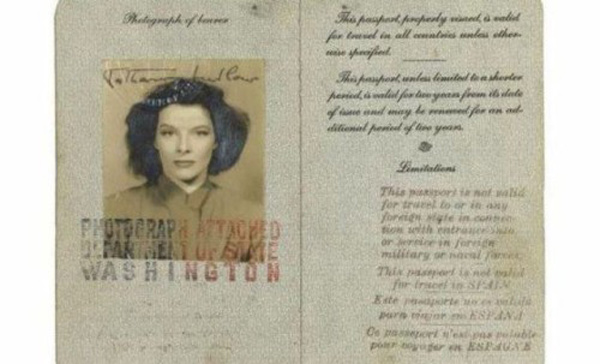 Photograph of bearer
PHOTOGRAPH ATTACHED
DEPARTMENT OF STATE
WASHINGTON
This passport, properly visaed, is valid
for travel in all countries unless other-
wise specified.
This passport, unless limited to a shorter
period, is valid for two years from its date
of issue and may be renewed for an ad-
ditional period of two years.
Limitations
This passport is not valid
for travel to or in any
foreign state in connec-
tion with entrance into
or service in foreign
military or naval forces.
This passport is not valid
for travel in SPAIN
Este pasaporte no es valido
para viajar en ESPAÑA
Ce passeport n'est pas valable
pour voyager en ESPAGNE